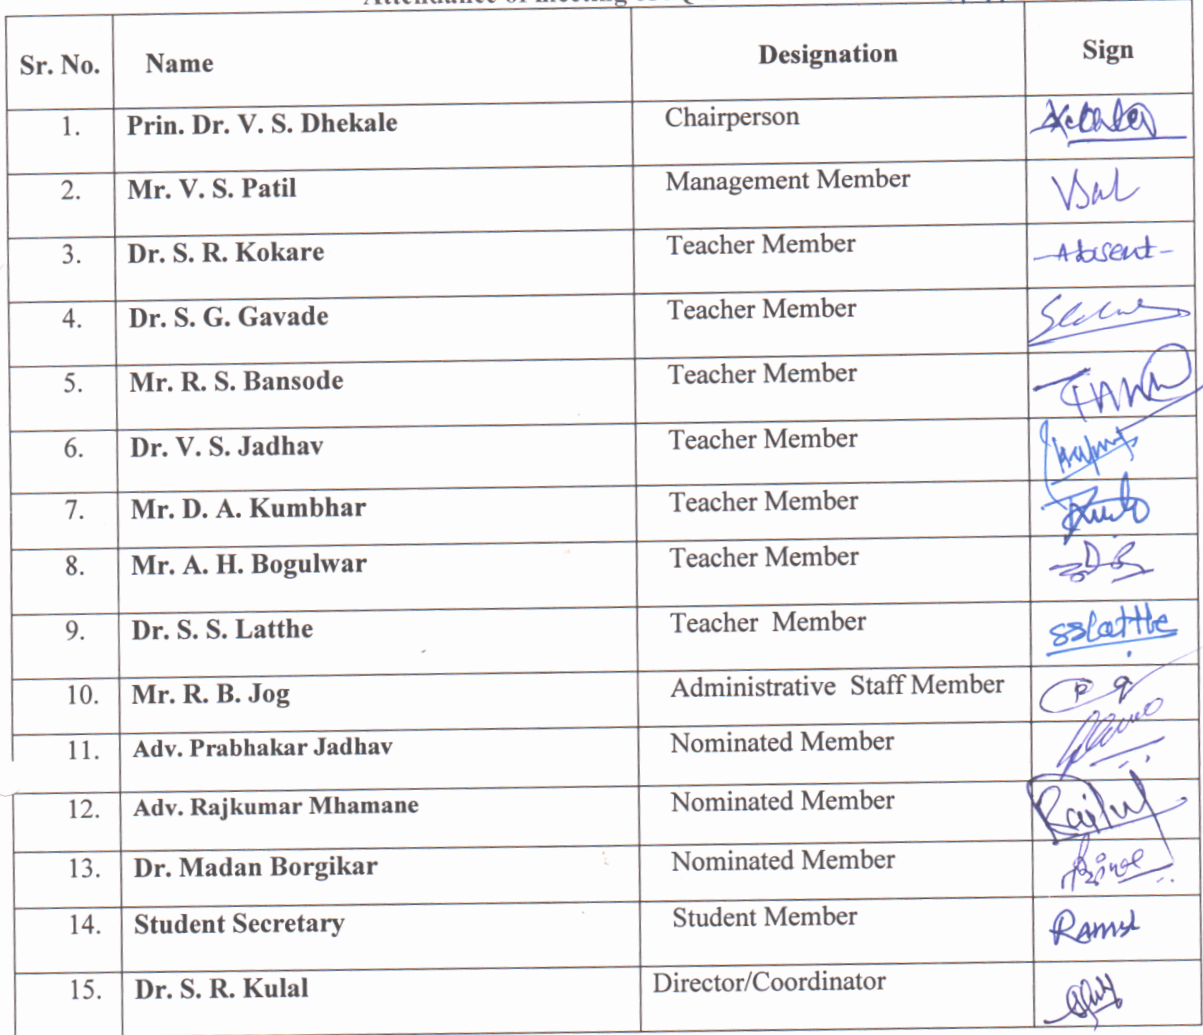 Attendance of meeting
Sr. No. Name Designation Sign
1. Prin. Dr. V. S. Dhekale Chairperson
2. Mr. V. S. Patil Management Member
3. Dr. S. R. Kokare Teacher Member -Absent-
4. Dr. S. G. Gavade Teacher Member
5. Mr. R. S. Bansode Teacher Member
6. Dr. V. S. Jadhav Teacher Member
7. Mr. D. A. Kumbhar Teacher Member
8. Mr. A. H. Bogulwar Teacher Member
9. Dr. S. S. Latthe Teacher Member sslatthe
10. Mr. R. B. Jog Administrative Staff Member
11. Adv. Prabhakar Jadhav Nominated Member
12. Adv. Rajkumar Mhamane Nominated Member
13. Dr. Madan Borgikar Nominated Member
14. Student Secretary Student Member
15. Dr. S. R. Kulal Director/Coordinator